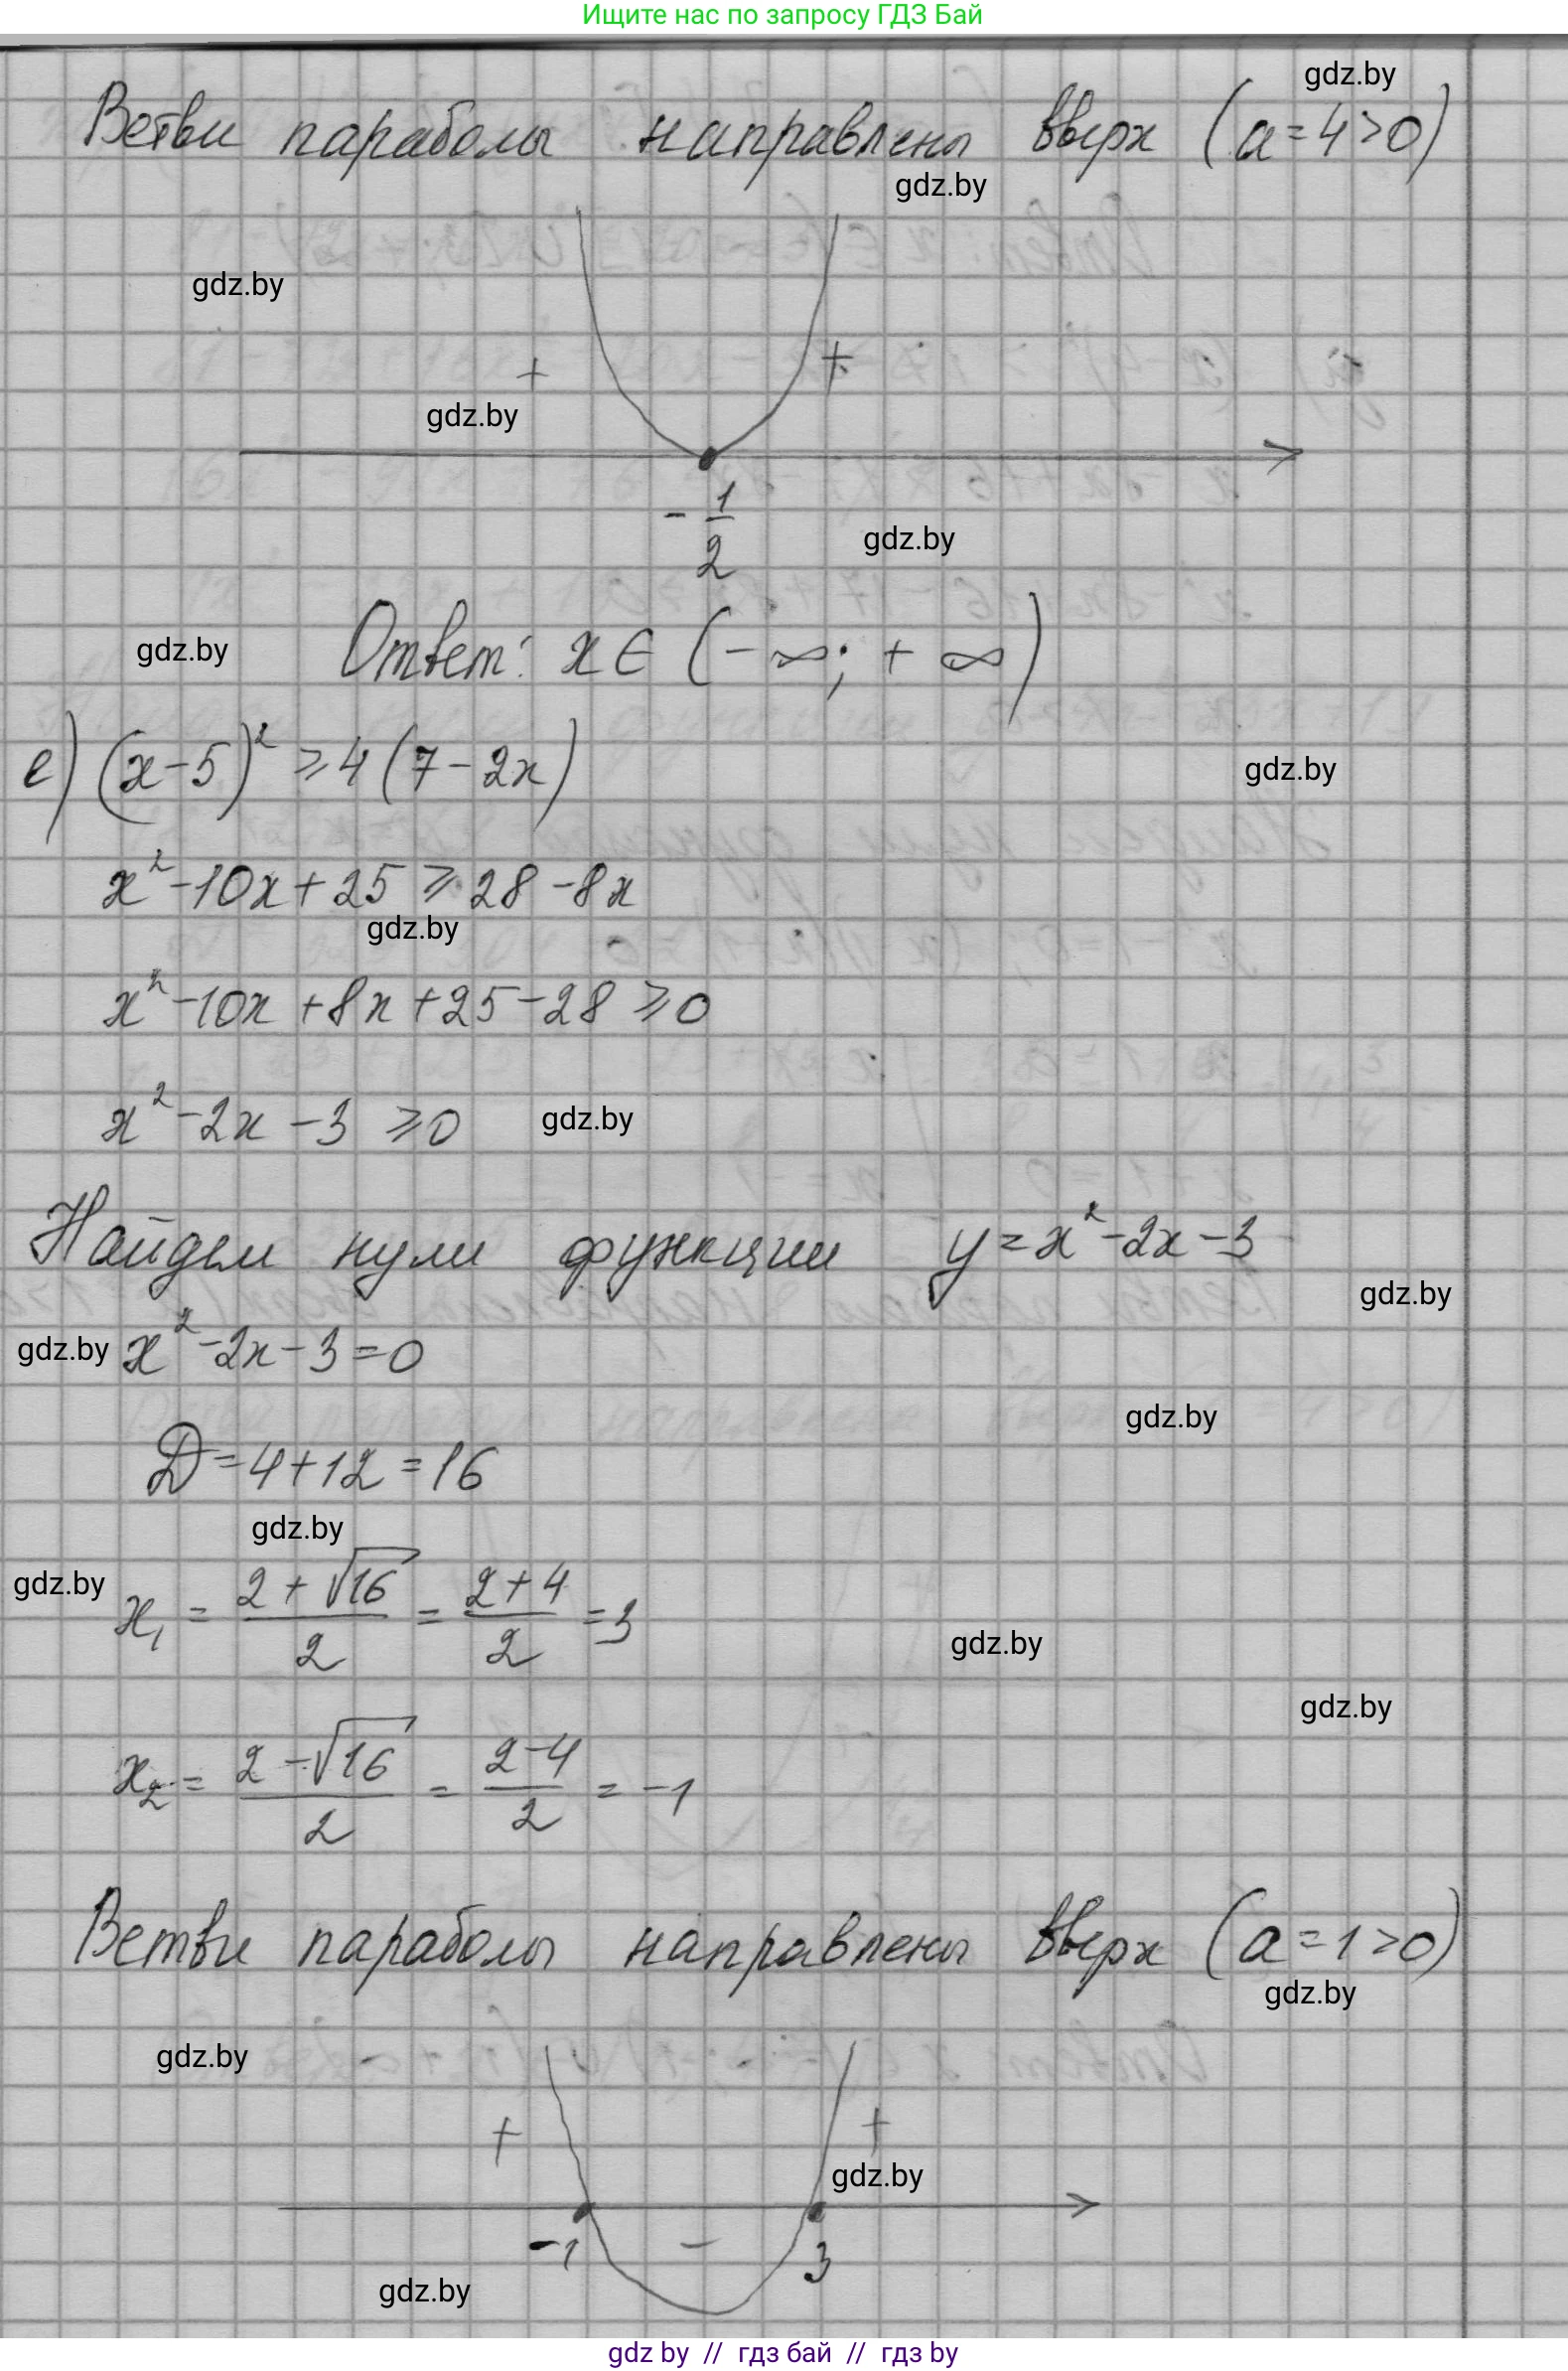 Ищите нас по запросу ГДЗ Бай
gdz.by
Ветви параболы направлены вверх (a=4>0)
gdz.by
gdz.by
+ +
gdz.by
-1/2
gdz.by
gdz.by
Ответ: x∈(-∞; +∞)
е) (x-5)² ≥ 4(7-2x)
gdz.by
x²-10x+25 ≥ 28-8x
gdz.by
x²-10x+8x+25-28 ≥ 0
x²-2x-3 ≥ 0
gdz.by
Найдем нули функции y=x²-2x-3
gdz.by
gdz.by
x²-2x-3=0
gdz.by
D=4+12=16
gdz.by
gdz.by
x₁ = (2+√16)/2 = (2+4)/2 = 3
gdz.by
gdz.by
x₂ = (2-√16)/2 = (2-4)/2 = -1
Ветви параболы направлены вверх (a=1>0)
gdz.by
gdz.by
+ +
gdz.by
-1 - 3
gdz.by
gdz by // гдз бай // гдз by